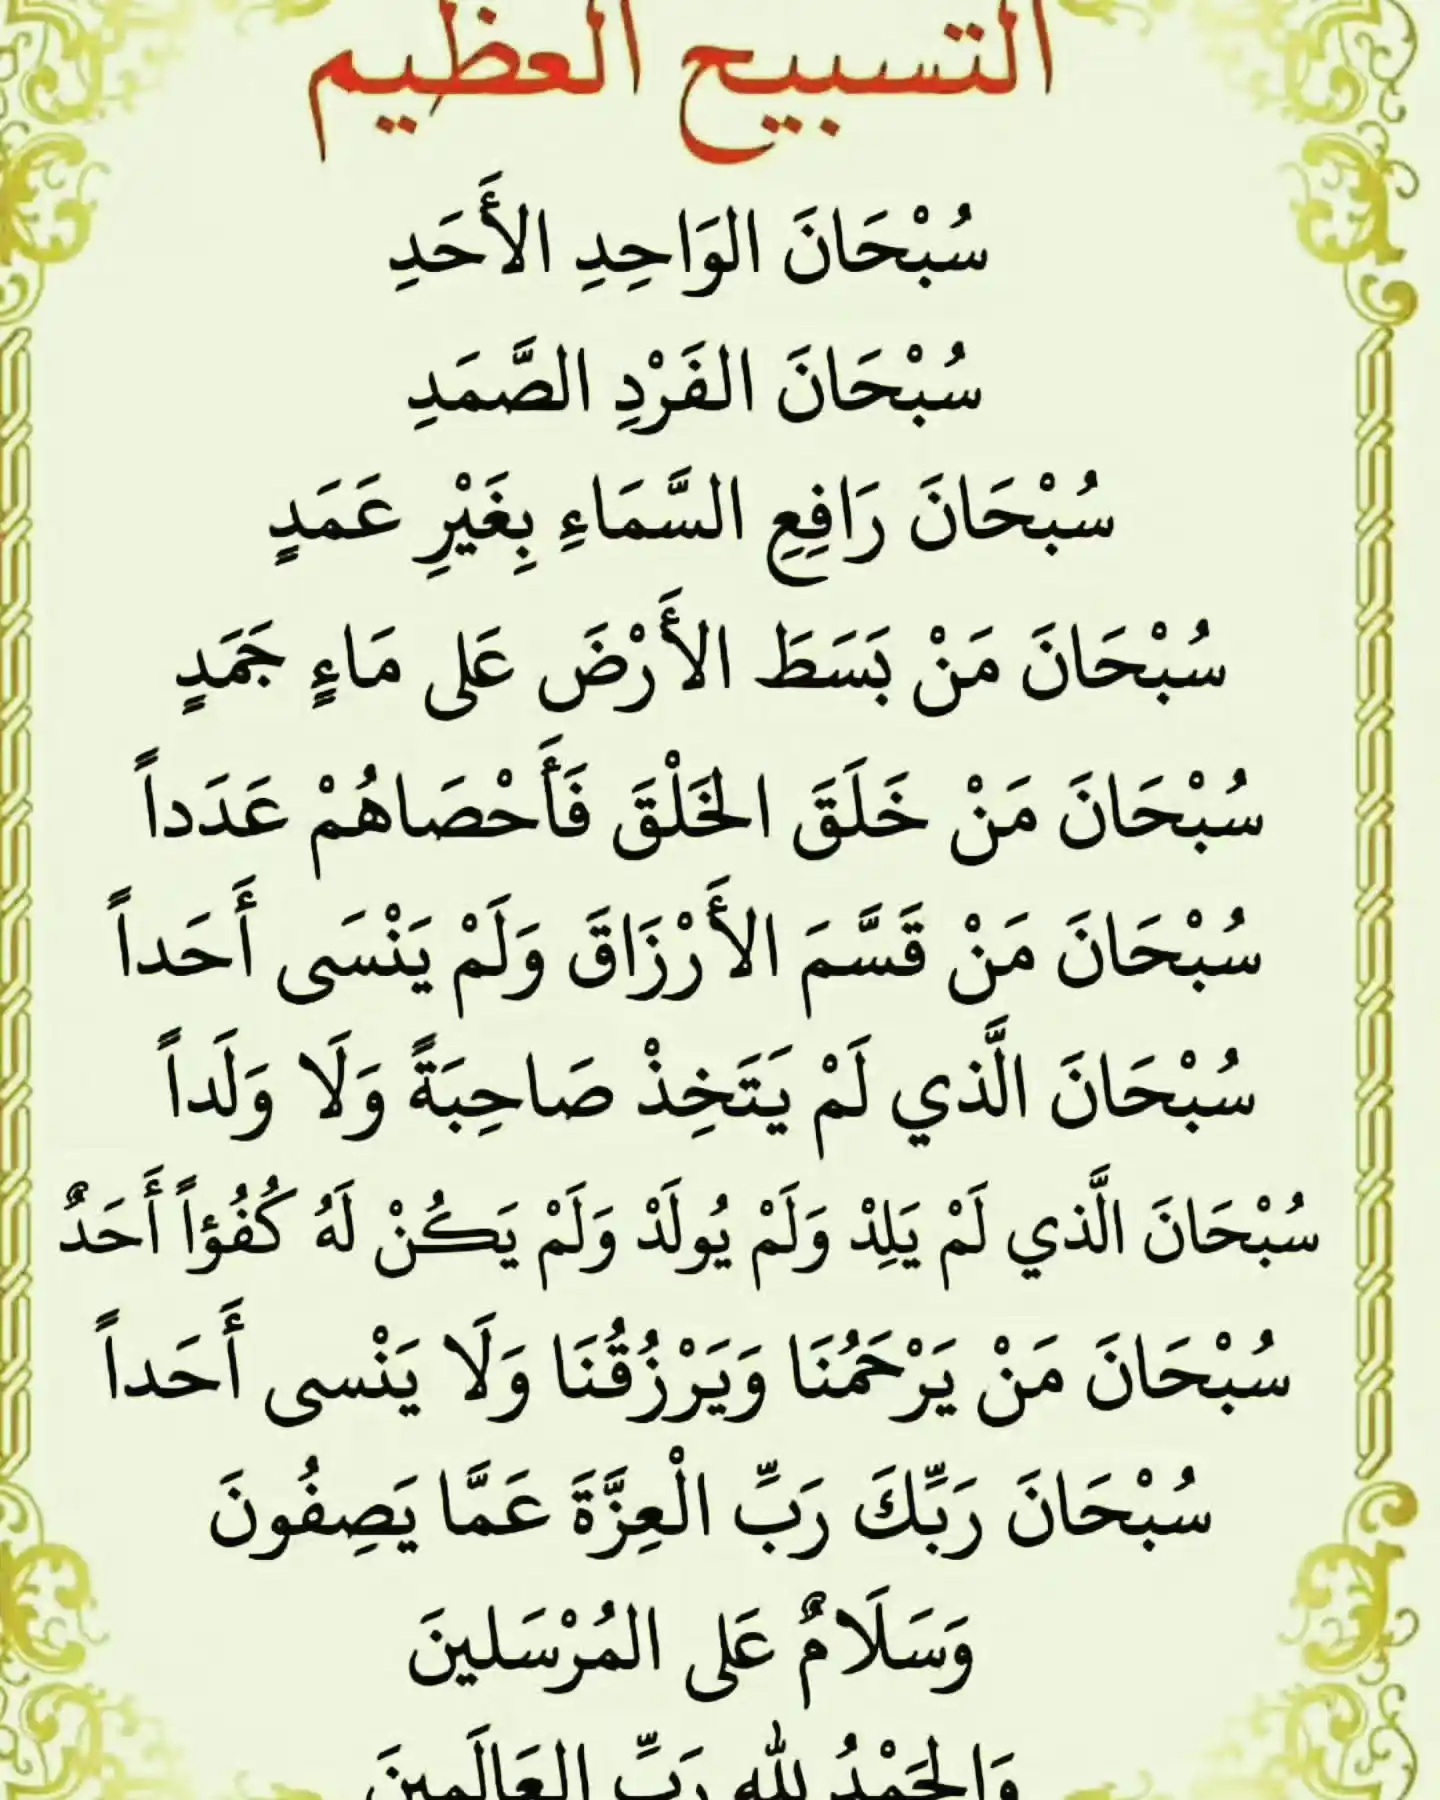 التسبيح العظيم
سُبْحَانَ الوَاحِدِ الأَحَدِ
سُبْحَانَ الفَرْدِ الصَّمَدِ
سُبْحَانَ رَافِعِ السَّمَاءِ بِغَيْرِ عَمَدٍ
سُبْحَانَ مَنْ بَسَطَ الأَرْضَ عَلى مَاءٍ جَمَدٍ
سُبْحَانَ مَنْ خَلَقَ الخَلْقَ فَأَحْصَاهُمْ عَدَداً
سُبْحَانَ مَنْ قَسَّمَ الأَرْزَاقَ وَلَمْ يَنْسَى أَحَداً
سُبْحَانَ الَّذي لَمْ يَتَخِذْ صَاحِبَةً وَلَا وَلَداً
سُبْحَانَ الَّذي لَمْ يَلِدْ وَلَمْ يُولَدْ وَلَمْ يَكُنْ لَهُ كُفُؤاً أَحَدٌ
سُبْحَانَ مَنْ يَرْحَمُنَا وَيَرْزُقُنَا وَلَا يَنْسى أَحَداً
سُبْحَانَ رَبِّكَ رَبِّ الْعِزَّةَ عَمَّا يَصِفُونَ
وَسَلَامٌ عَلى المُرْسَلينَ
وَالحَمْدُ للهِ رَبِّ العَالَمِينَ